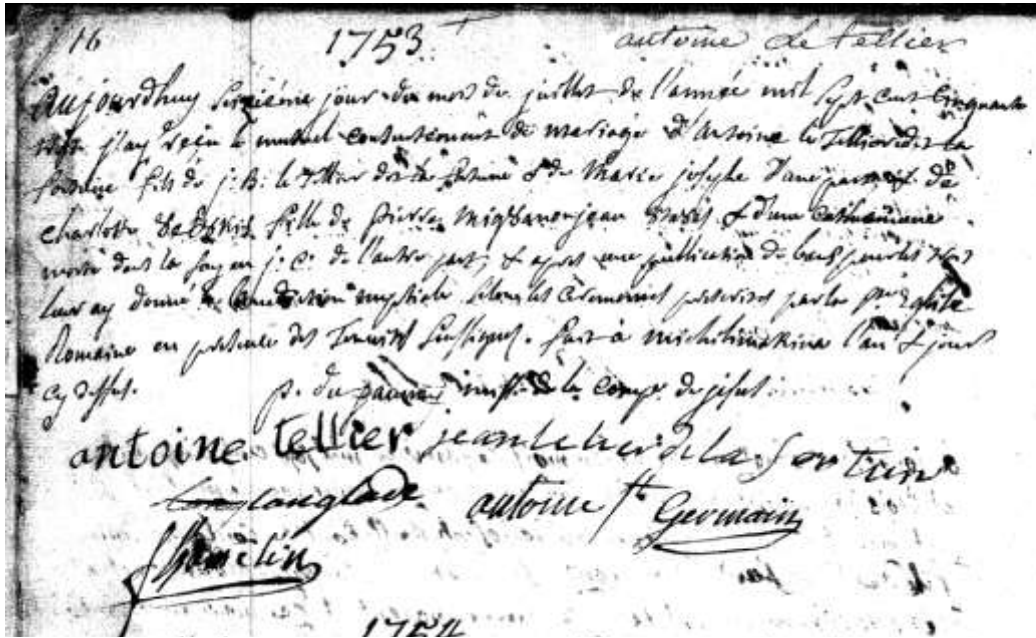 16 1753 antoine le tellier
Aujourdhuy sixiéme jour du mois de juillet de l'année mil sept cent cinquante
j'ay reçu le mutuel consentement de mariage d'Antoine le Tellier dit la
fontaine fils de j. B. le Tellier dit la fontaine & de Marie josephe d'une part & de
charlotte fille de pierre & d'une
morte dans la foy en j. C. de l'autre part, & apres une publication de bans
leur ay donné la benediction nuptiale selon les Ceremonies prescrites par la Eglise
Romaine en presence des Temoins soussignés. fait à michilimakina l'an & jour
Cy dessus. p. du jaunay miss. de la comp. de jesus
antoine tellier jean de la
langlade antoine st. Germain
hamelin
1754